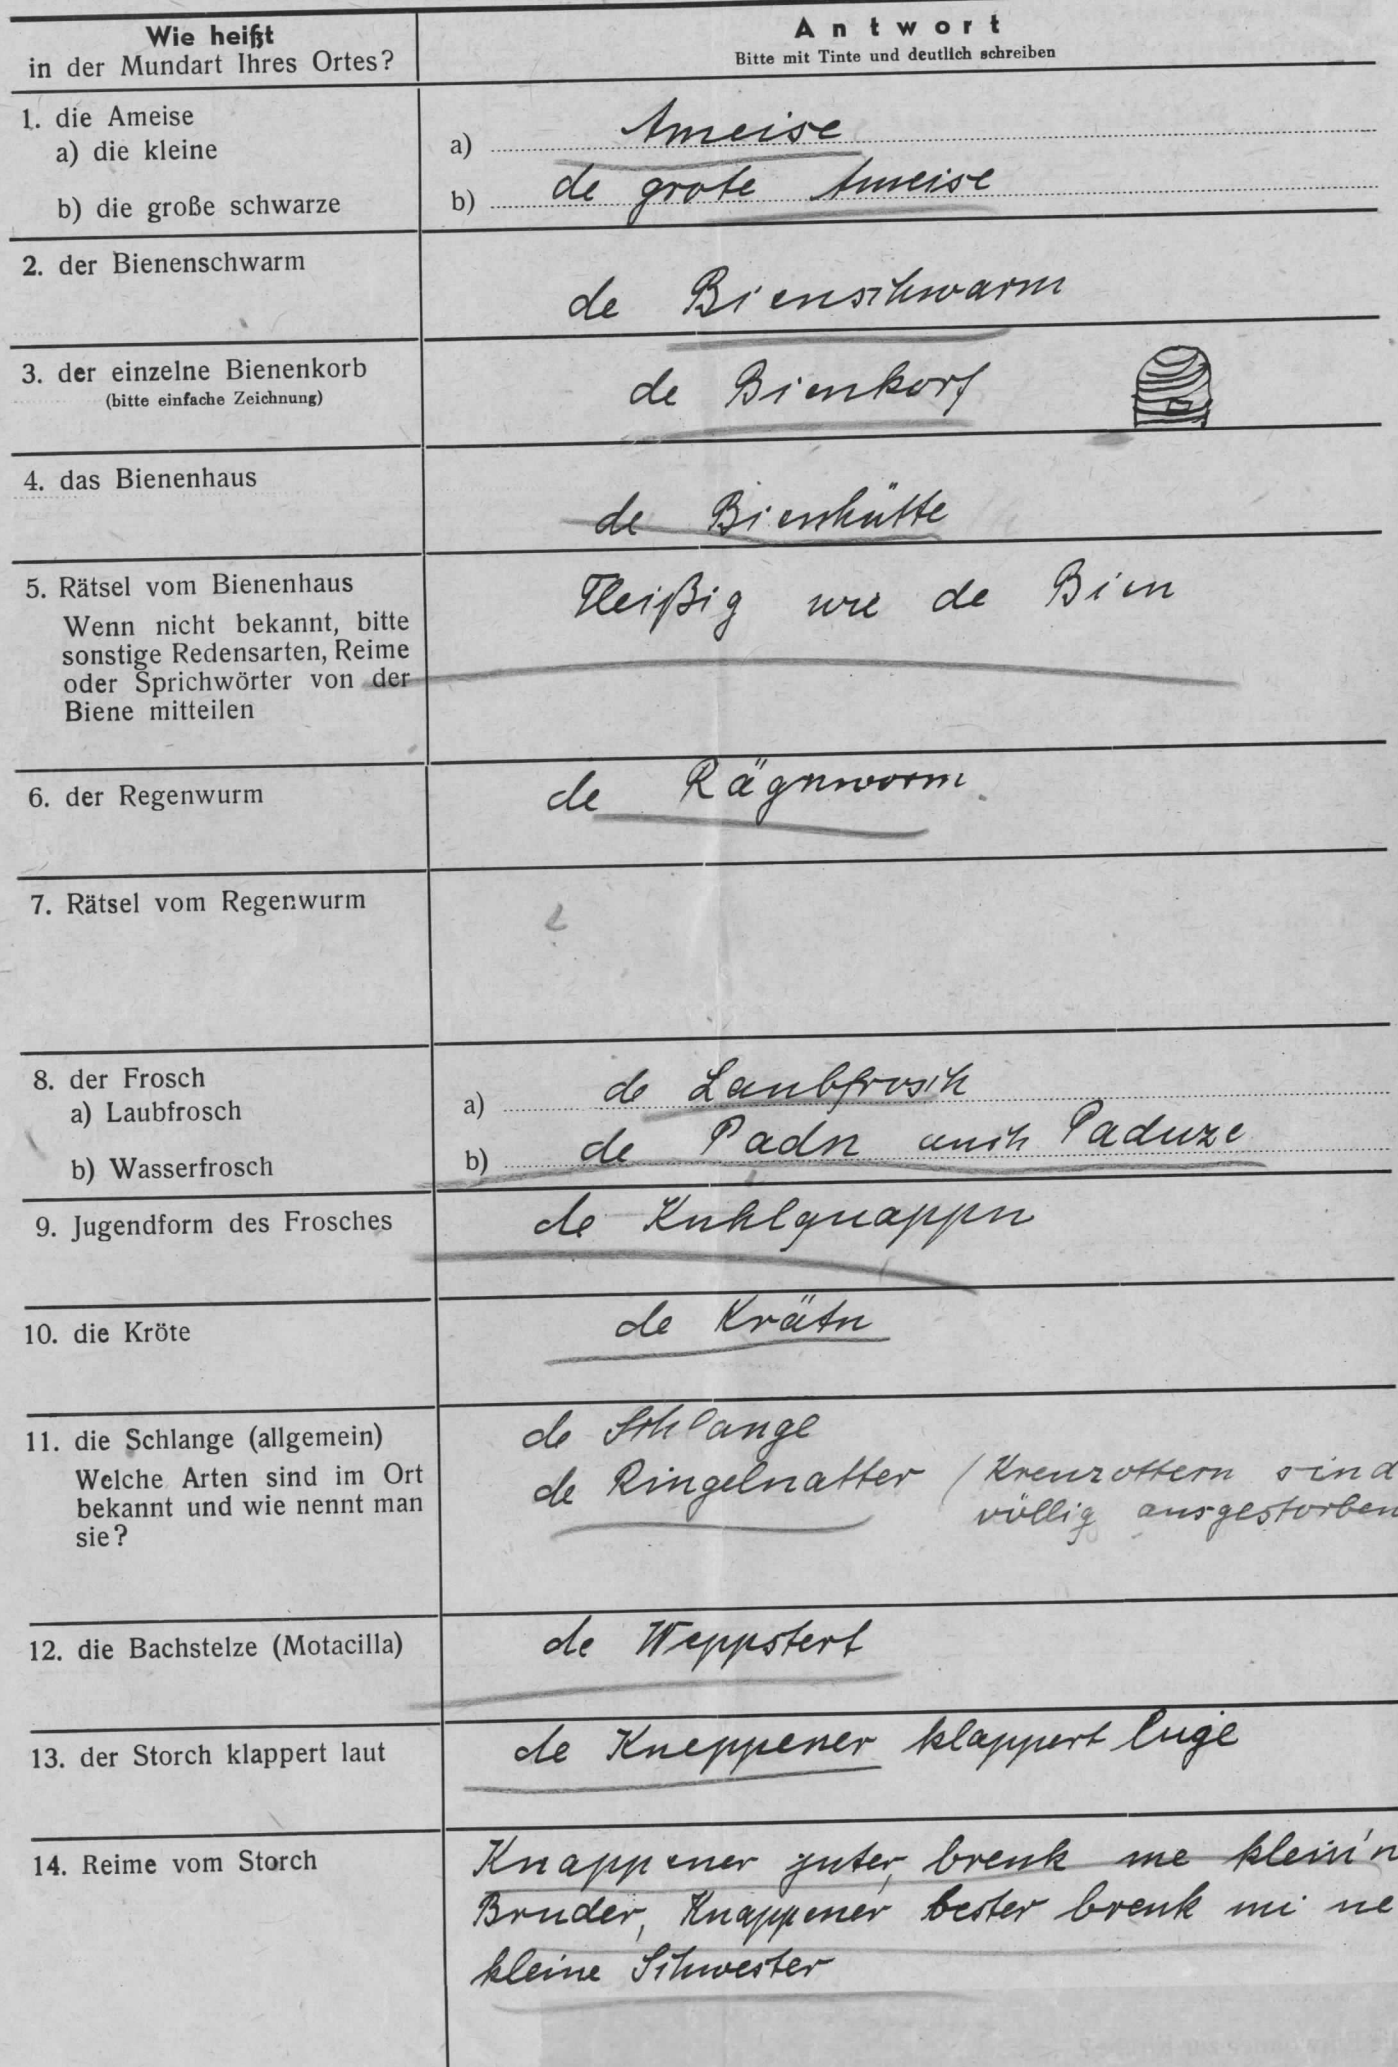 Wie heißt
in der Mundart Ihres Ortes?
Antwort
Bitte mit Tinte und deutlich schreiben
1. die Ameise
a) die kleine
a) Ameise
b) die große schwarze
b) de grote Ameise
2. der Bienenschwarm
de Bienschwarm
3. der einzelne Bienenkorb
(bitte einfache Zeichnung)
de Bienkorf
4. das Bienenhaus
de Bienhütte
5. Rätsel vom Bienenhaus
Wenn nicht bekannt, bitte
sonstige Redensarten, Reime
oder Sprichwörter von der
Biene mitteilen
Fleißig wie de Bien
6. der Regenwurm
de Rägnworm
7. Rätsel vom Regenwurm
8. der Frosch
a) Laubfrosch
a) de Laubfrosch
b) Wasserfrosch
b) de Padn auch Paduze
9. Jugendform des Frosches
de Kuhlquappn
10. die Kröte
de Krätn
11. die Schlange (allgemein)
Welche Arten sind im Ort
bekannt und wie nennt man
sie?
de Schlange
de Ringelnatter (Kreuzottern sind
völlig ausgestorben
12. die Bachstelze (Motacilla)
de Weppstert
13. der Storch klappert laut
de Kneppener klappert luge
14. Reime vom Storch
Knappener guter, brenk me klein'n
Bruder, Knappener bester brenk mi ne
kleine Schwester